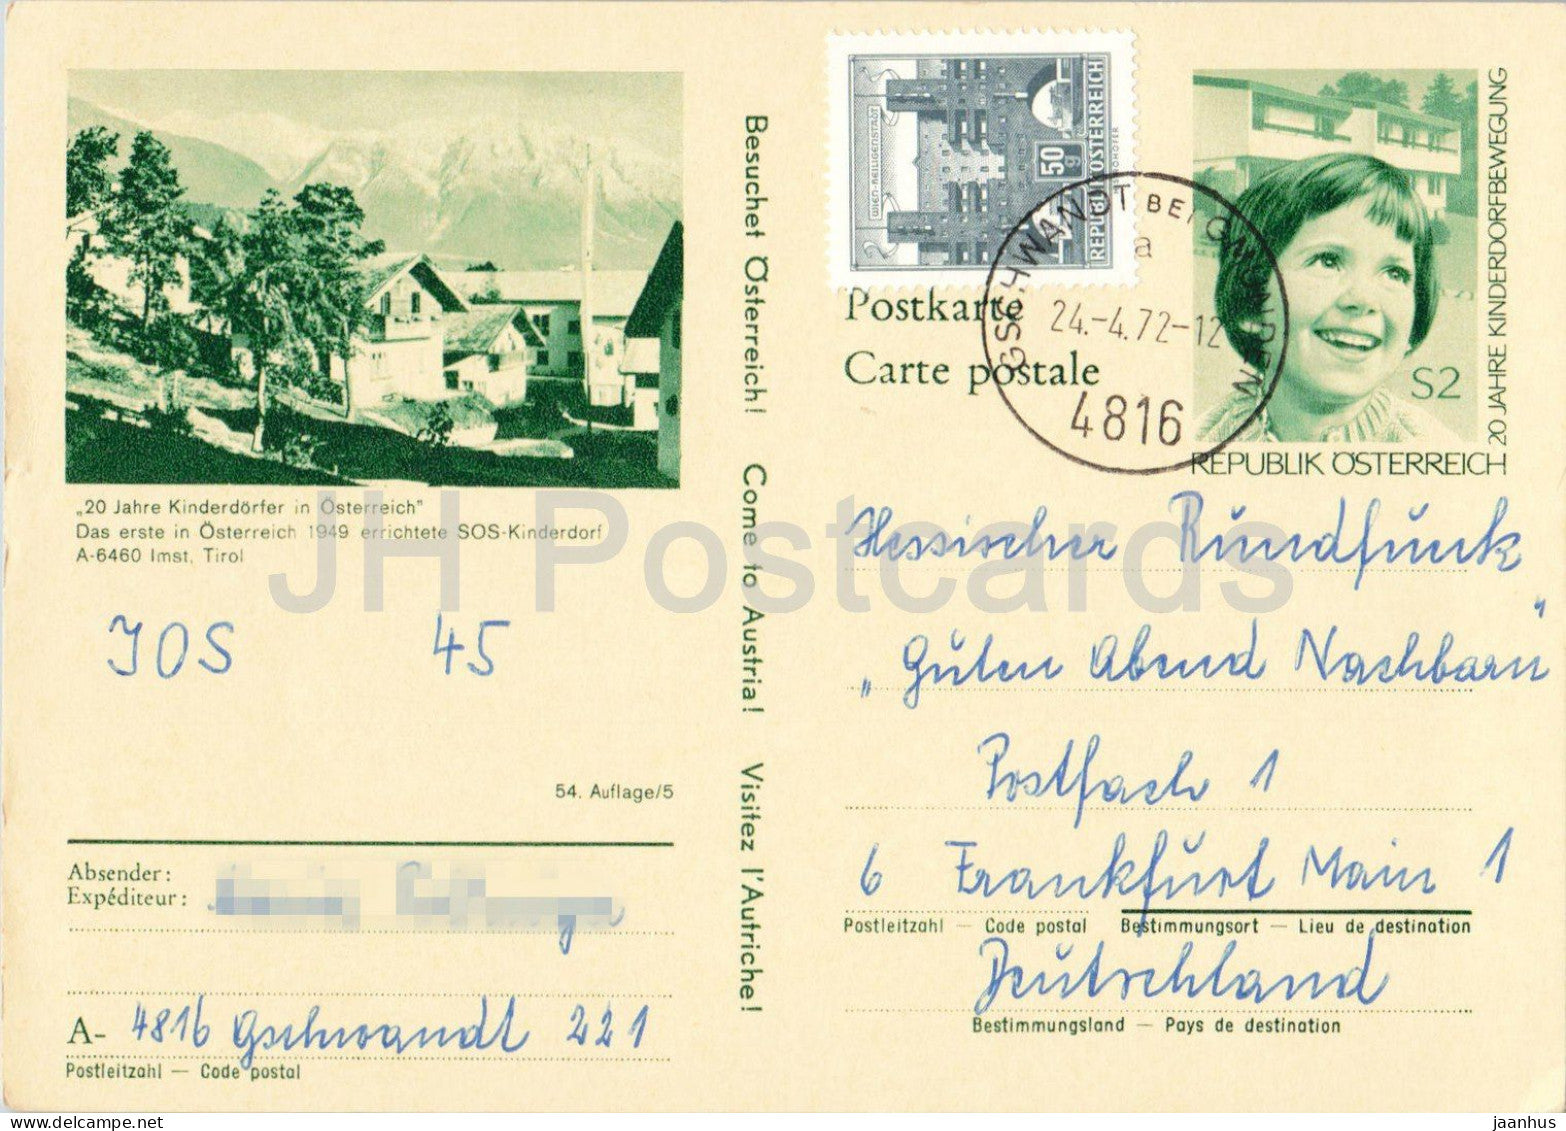 „20 Jahre Kinderdörfer in Österreich"
Das erste in Österreich 1949 errichtete SOS-Kinderdorf
A-6460 Imst, Tirol
JOS 45
54. Auflage/5
Absender:
Expéditeur:
A- 4816 Gschwandt 221
Postleitzahl — Code postal
Besuchet Österreich! Come to Austria! Visitez l'Autriche!
WIEN-HEILIGENSTADT
50 g
REPUBLIK ÖSTERREICH
GSCHWANDT BEI GMUNDEN
a
24.-4.72-12
4816
Postkarte
Carte postale
S2
20 JAHRE KINDERDORFBEWEGUNG
REPUBLIK ÖSTERREICH
Hessischer Rundfunk
„Guten Abend Nachbarn"
Postfach 1
6 Frankfurt Main 1
Postleitzahl — Code postal Bestimmungsort — Lieu de destination
Deutschland
Bestimmungsland — Pays de destination
JH Postcards
delcampe.net
jaanhus